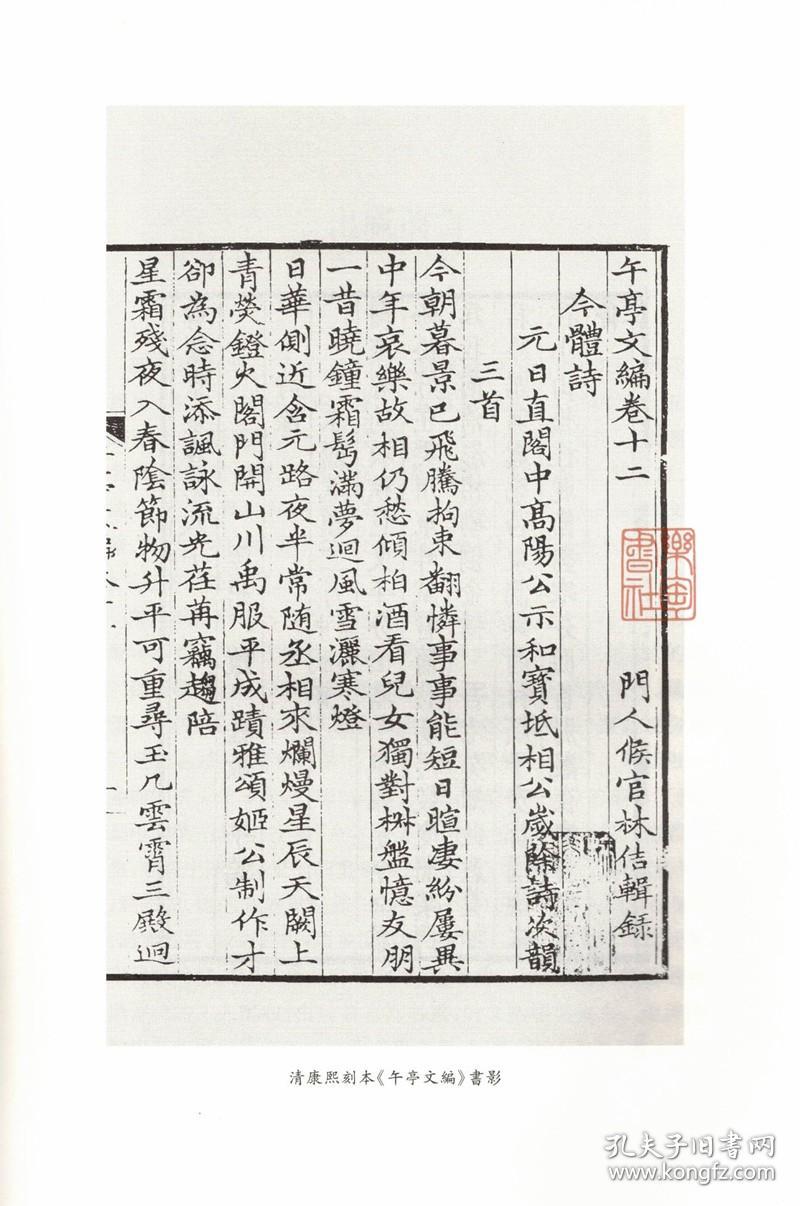 午亭文編卷十二
門人候官林佶輯録
今體詩
元日直閣中髙陽公示和寳坻相公歲除詩次韻
三首
今朝暮景已飛騰拘束翻憐事事能短日暄凄紛屢異
中年哀樂故相仍愁傾柏酒看兒女獨對椒盤憶友朋
一昔曉鐘霜髩滿夢迴風雪灑寒燈
日華側近含元路夜半常随丞相來爛熳星辰天闕上
青熒鐙火閣門開山川禹服平成蹟雅頌姬公制作才
卻為念時添諷詠流光荏苒竊趨陪
星霜殘夜入春陰節物升平可重尋玉几雲霄三殿迥
樂寅書社
清康熙刻本《午亭文編》書影
孔夫子旧書网
www.kongfz.com